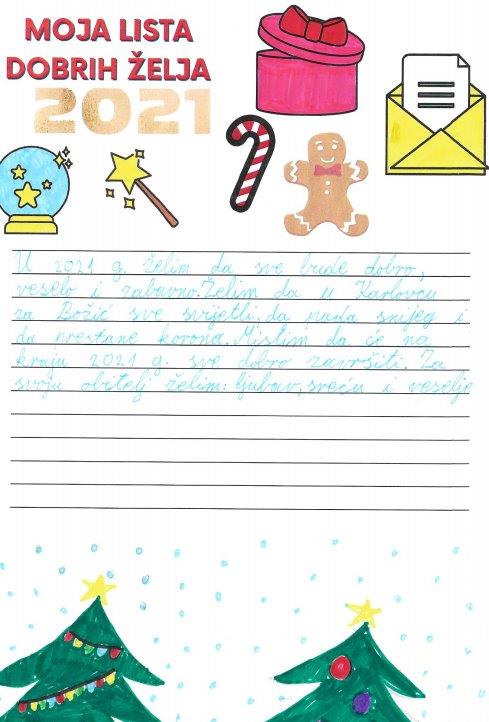 MOJA LISTA
DOBRIH ŽELJA
2021
U 2021 g. želim da sve bude dobro,
veselo i zabavno. Želim da u Karlovcu
za Božić sve svijetli, da pada snijeg i
da prestane korona. Mislim da će na
kraju 2021 g. sve dobro završiti. Za
svoju obitelj želim: ljubav, sreću i veselje